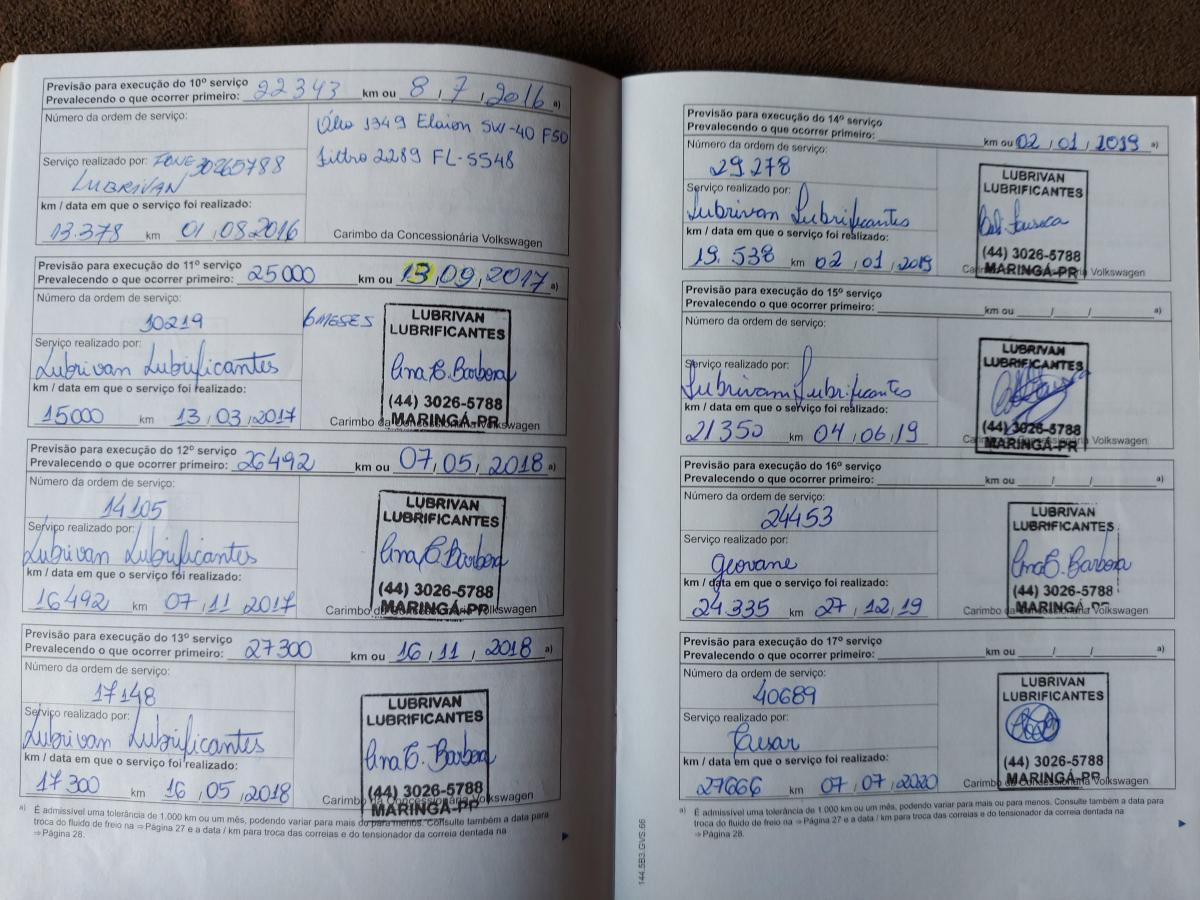 Previsão para execução do 10º serviço
Prevalecendo o que ocorrer primeiro: 22343 km ou 8, 7, 2016 a)
Número da ordem de serviço:
Óleo 1349 Elaion 5W-40 F50
filtro 2289 FL-5548
Serviço realizado por: FONE 30265788
LUBRIVAN
km / data em que o serviço foi realizado:
13.378 km 01, 08 2016
Carimbo da Concessionária Volkswagen
Previsão para execução do 11º serviço
Prevalecendo o que ocorrer primeiro: 25000 km ou 13, 09, 2017 a)
Número da ordem de serviço:
10219
6 MESES
Serviço realizado por:
Lubrivan Lubrificantes
km / data em que o serviço foi realizado:
15000 km 13, 03, 2017
LUBRIVAN
LUBRIFICANTES
Ana C. Barbosa
(44) 3026-5788
MARINGÁ-PR
Carimbo da Concessionária Volkswagen
Previsão para execução do 12º serviço
Prevalecendo o que ocorrer primeiro: 26492 km ou 07, 05, 2018 a)
Número da ordem de serviço:
14105
Serviço realizado por:
Lubrivan Lubrificantes
km / data em que o serviço foi realizado:
16492 km 07, 11, 2017
LUBRIVAN
LUBRIFICANTES
Ana C. Barbosa
(44) 3026-5788
MARINGÁ-PR
Carimbo da Concessionária Volkswagen
Previsão para execução do 13º serviço
Prevalecendo o que ocorrer primeiro: 27300 km ou 16, 11, 2018 a)
Número da ordem de serviço:
17148
Serviço realizado por:
Lubrivan Lubrificantes
km / data em que o serviço foi realizado:
17300 km 16, 05, 2018
LUBRIVAN
LUBRIFICANTES
Ana C. Barbosa
(44) 3026-5788
MARINGÁ-PR
Carimbo da Concessionária Volkswagen
a) É admissível uma tolerância de 1.000 km ou um mês, podendo variar para mais ou para menos. Consulte também a data para
troca do fluido de freio na ⇒ Página 27 e a data / km para troca das correias e do tensionador da correia dentada na
⇒ Página 28.
Previsão para execução do 14º serviço
Prevalecendo o que ocorrer primeiro: km ou 02, 01, 2019 a)
Número da ordem de serviço:
29278
Serviço realizado por:
Lubrivan Lubrificantes
km / data em que o serviço foi realizado:
19.538 km 02, 01, 2019
LUBRIVAN
LUBRIFICANTES
(44) 3026-5788
MARINGÁ-PR
Carimbo da Concessionária Volkswagen
Previsão para execução do 15º serviço
Prevalecendo o que ocorrer primeiro: km ou / / a)
Número da ordem de serviço:
Serviço realizado por:
Lubrivan Lubrificantes
km / data em que o serviço foi realizado:
21350 km 04, 06, 19
LUBRIVAN
LUBRIFICANTES
(44) 3026-5788
MARINGÁ-PR
Carimbo da Concessionária Volkswagen
Previsão para execução do 16º serviço
Prevalecendo o que ocorrer primeiro: km ou / / a)
Número da ordem de serviço:
24453
Serviço realizado por:
Geovane
km / data em que o serviço foi realizado:
24335 km 27, 12, 19
LUBRIVAN
LUBRIFICANTES
Ana C. Barbosa
(44) 3026-5788
MARINGÁ-PR
Carimbo da Concessionária Volkswagen
Previsão para execução do 17º serviço
Prevalecendo o que ocorrer primeiro: km ou / / a)
Número da ordem de serviço:
40689
Serviço realizado por:
Cesar
km / data em que o serviço foi realizado:
27666 km 07, 07, 2020
LUBRIVAN
LUBRIFICANTES
(44) 3026-5788
MARINGÁ-PR
Carimbo da Concessionária Volkswagen
a) É admissível uma tolerância de 1.000 km ou um mês, podendo variar para mais ou para menos. Consulte também a data para
troca do fluido de freio na ⇒ Página 27 e a data / km para troca das correias e do tensionador da correia dentada na
⇒ Página 28.
144.5B3.GVS.66